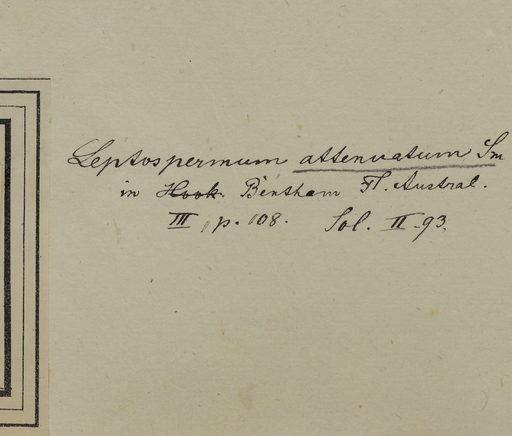 Leptospermum attenuatum Sm
in Hook. Bentham Fl. Austral.
III, p. 108. Sol. II-93.